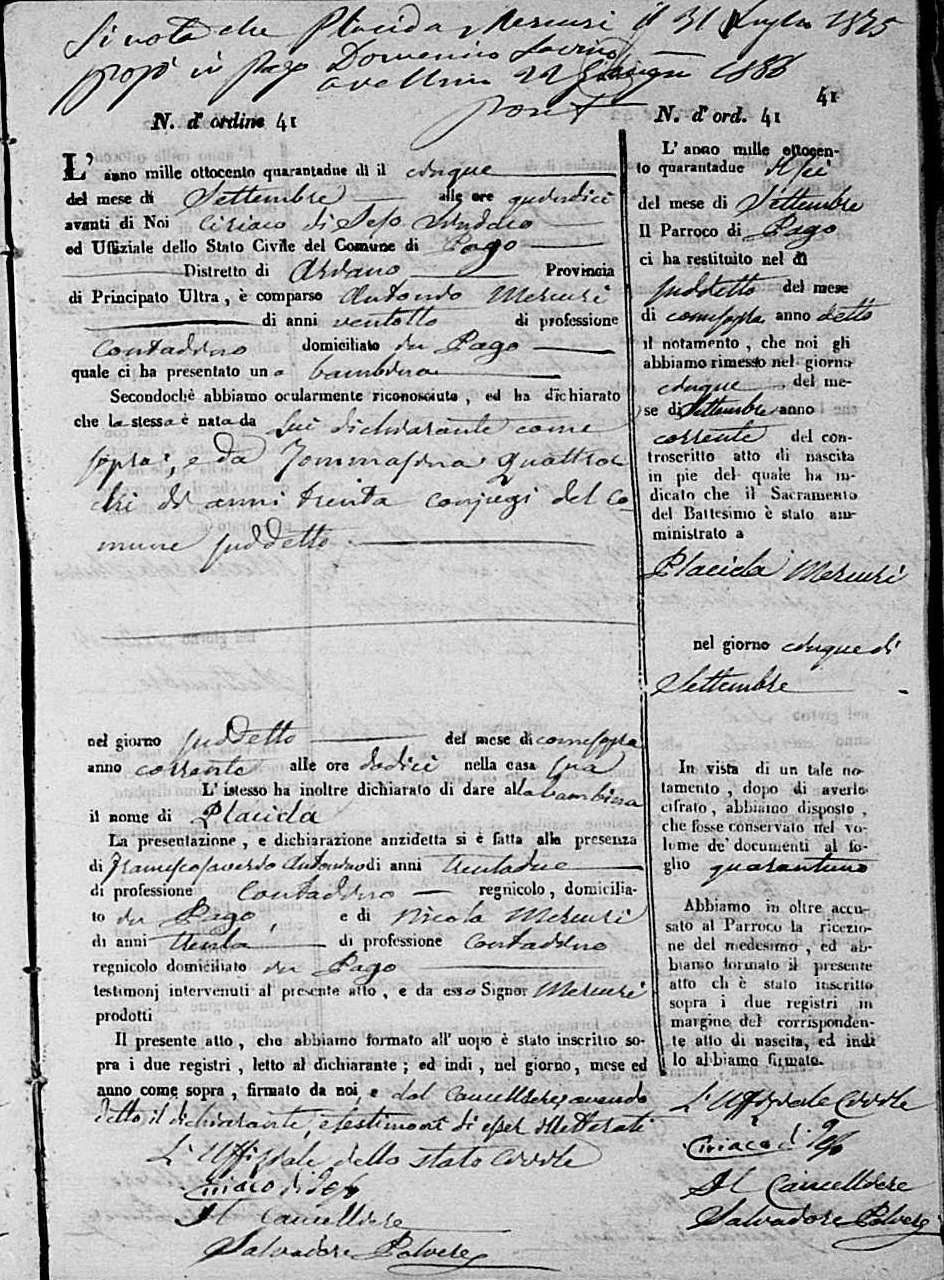 Si nota che Placida Mercuri il 31 Luglio 1875
sposò in Pago Domenico
Avellino 22 1886
41
N. d' ordine 41
L' anno mille ottocento quarantadue di il cinque
del mese di Settembre alle ore quindici
avanti di Noi Ciriaco di Sindaco
ed Uffiziale dello Stato Civile del Comune di Pago
Distretto di Ariano Provincia
di Principato Ultra, è comparso Antonio Mercuri
di anni ventotto di professione
Contadino domiciliato in Pago
quale ci ha presentato una bambina
Secondochè abbiamo ocularmente riconosciuto, ed ha dichiarato
che la stessa è nata da lui dichiarante come
sopra, e da Tommasina Quattro
chi di anni trenta conjugi del Co-
mune suddetto
nel giorno suddetto del mese di comesopra
anno corrente alle ore dodici nella casa sua
L' istesso ha inoltre dichiarato di dare alla bambina
il nome di Placida
La presentazione, e dichiarazione anzidetta si è fatta alla presenza
di Francescosaverio Antonino di anni trentadue
di professione Contadino regnicolo, domicilia-
to in Pago, e di Nicola Mercuri
di anni trenta di professione Contadino
regnicolo domiciliato in Pago
testimonj intervenuti al presente atto, e da esso Signor Mercuri
prodotti
Il presente atto, che abbiamo formato all' uopo è stato inscritto so-
pra i due registri, letto al dichiarante; ed indi, nel giorno, mese ed
anno come sopra, firmato da noi, e dal Cancelliere, avendo
detto il dichiarante, e testimoni di esser illetterati
L'Uffiziale dello stato Civile
Ciriaco di
Il Cancelliere
Salvadore Polvere
N. d' ord. 41
L' anno mille ottocen-
to quarantadue il sei
del mese di Settembre
Il Parroco di Pago
ci ha restituito nel dì
suddetto del mese
di comesopra anno detto
il notamento, che noi gli
abbiamo rimesso nel giorno
cinque del me-
se di Settembre anno
corrente del con-
troscritto atto di nascita
in pie del quale ha in-
dicato che il Sacramento
del Battesimo è stato am-
ministrato a
Placida Mercuri
nel giorno cinque di
Settembre
In vista di un tale no-
tamento, dopo di averlo
cifrato, abbiamo disposto,
che fosse conservato nel vo-
lume de' documenti al fo-
glio quarantuno
Abbiamo in oltre accu-
sato al Parroco la ricezio-
ne del medesimo, ed ab-
biamo formato il presente
atto ch è stato inscritto
sopra i due registri in
margine del corrisponden-
te atto di nascita, ed indi
lo abbiamo firmato.
L'Uffiziale Civile
Ciriaco di
Il Cancelliere
Salvadore Polvere